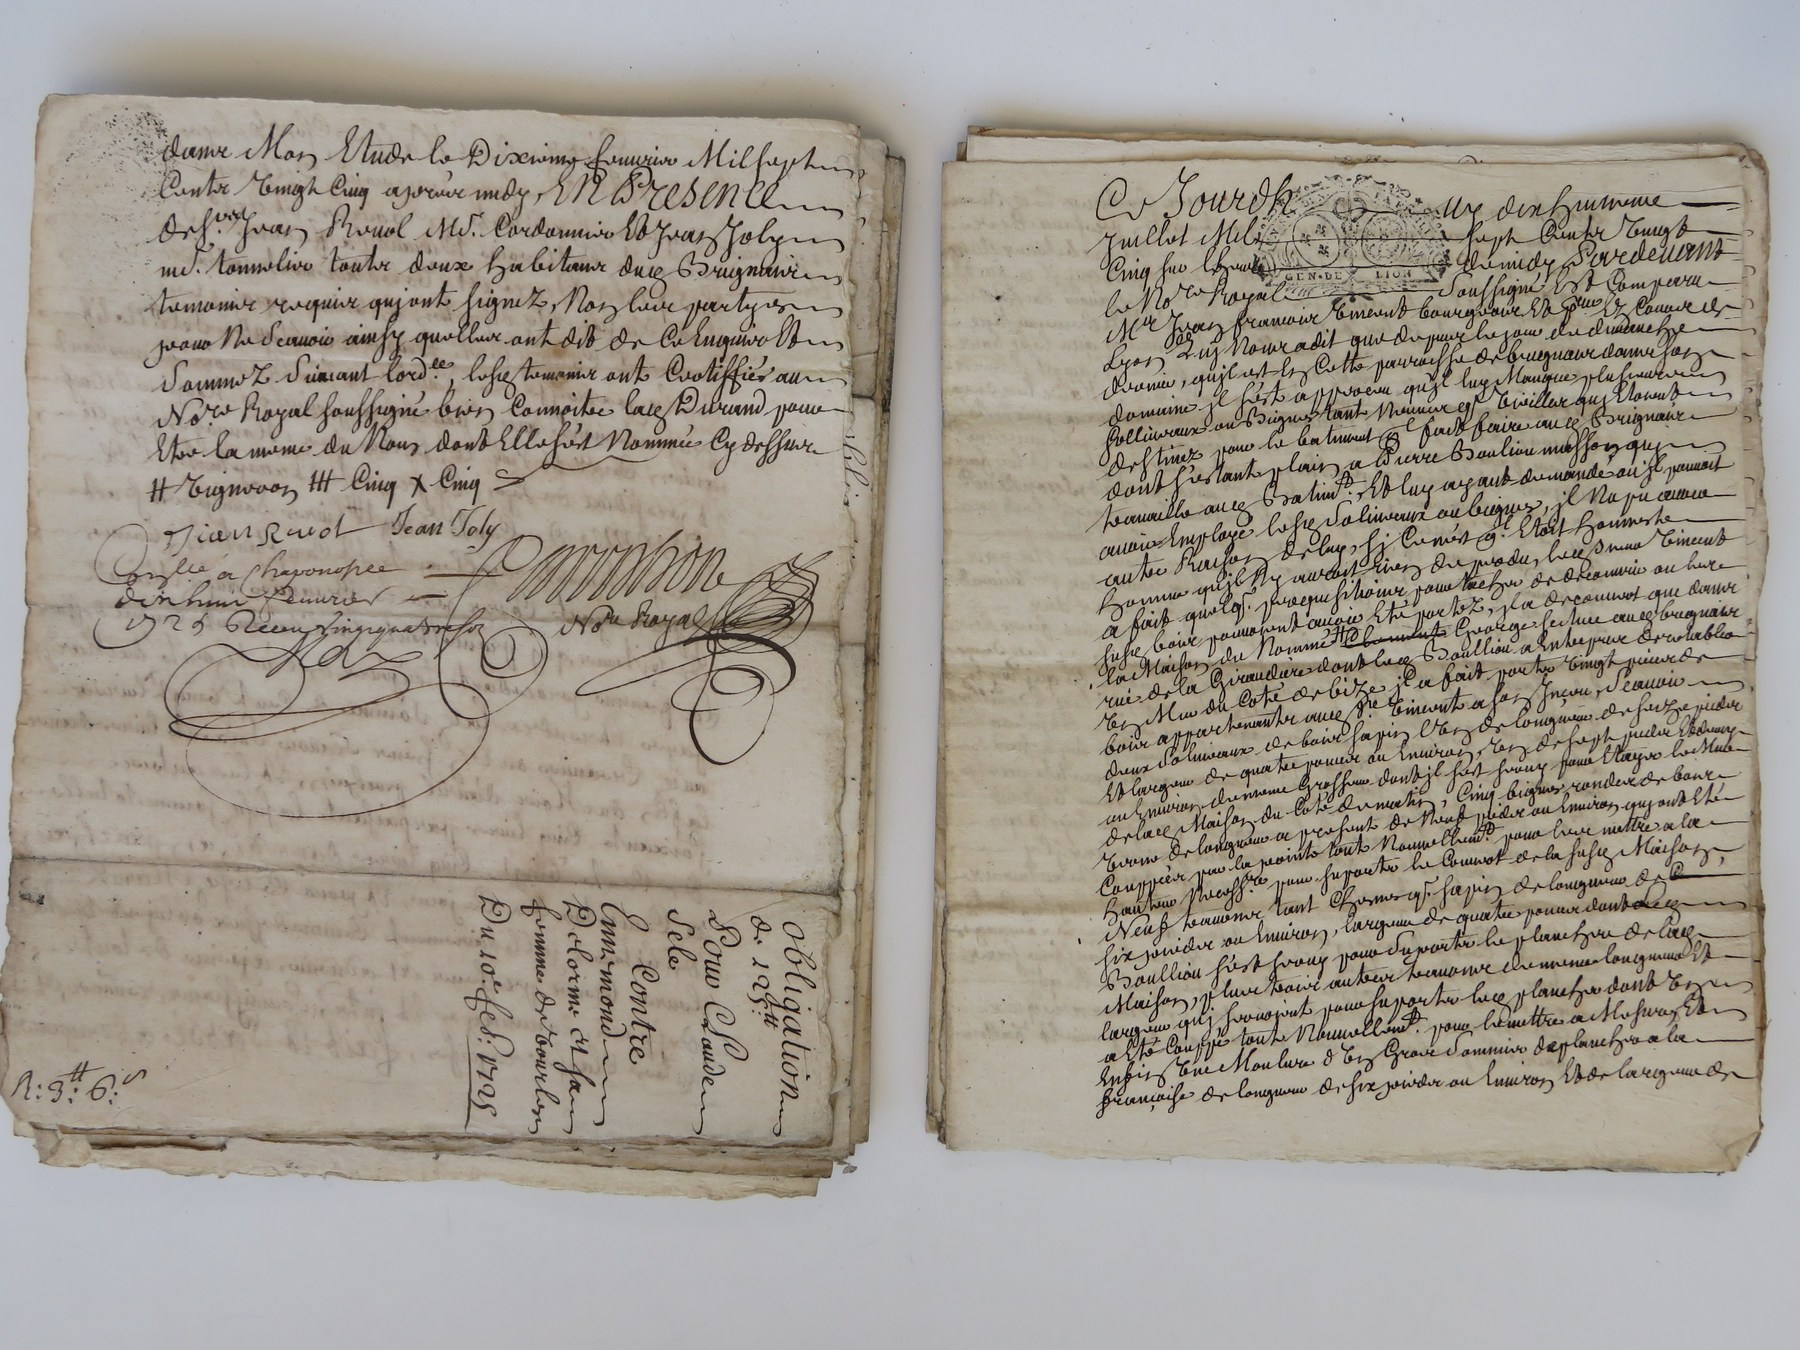 dans Mon Etude le Dixieme feuvrier Mil sept
Cents Vingt Cinq apprés midy, EN Presence
de Sr. Jean Revol Md. Cordonnier Et Jean Joly
md. tonnelier touts deux habitans dud. Brignais
temoins requis qui ont signez, Non les partyes
pour Ne Scavoir ainsy quelles ont dit de Ce Enquis Et
Sommez Suivant lord.ce, lesd. temoins ont Certiffiés au
No.re Royal soussigné bien Connoitre lad. Durand pour
Etre la meme du Nom dont Elle s'est Nommée Cy dessus
# Vigneron ## Cinq X Cinq
Jean Revol Jean Joly
a Chaponost
dix huit feuvrier
1725 Receu
No.re Royal
obligation
de 125.#
Pour Claude
Contre
Ennemond
Delorme et sa
femme de Vourles
Du 10.e feb: 1725
R: 3.# 6.s
Ce Jourdh uy dix huitieme
Juillet Mil sept Cents Vingt
Cinq sur l'heure de midy Pardevant
le No.re Royal Soussigné Est Comparu
GEN. DE LION
Mr. Jean francois Vincent bourgeois
Lyon Qui Nous a dit que depuis le jour de dimanche
dernier, qu'il est En Cette parroisse de brignais dans son
domaine jl s'est apperceu qu'il luy Manque plusieurs
Sollineaux ou Bignes tant Neuves q. Vieilles qui Etoient
destinez pour le batiment q. jl fait faire aud. Brignais
dont s'estant plain a Pierre Boullion masson qui
travaille aud. Batim.t. Et luy ayant demandé ou jl pouvoit
avoir Employé lesd. Solineaux ou bignes, jl Na pu avoir
autre Raison de luy, sy Ce n'est q. Etoit honneste
homme qu'jl Ny avoit rien de perdu, led. Sieur Vincent
a fait quelq. perquisitions pour tacher de decouvrir ou leur
susd. bois pouvoient avoir Eté portez, jl a decouvert que dans
la Maison du Nommé # Clement George scituée aud. brignais
rue de la Giraudiere dont led. Boullion a Entrepris de rétablir
Vn Mur du Coté de bize jl a fait porter Vingt pieces de
bois appartenantes aud. Sr. Vincent a son Jnsceu, Scavoir
deux Solineaux de bois sapin l'Vn de longueur de seize pieds
Et largeur de quatre pouces ou Environ, Vn de sept pieds Et demy
ou Environ de meme Grosseur dont jl s'est servy pour Etayer le Mur
de lad. Maison du Coté de matin, Cinq bignes rondes de bois
Verne de longueur a present de Neuf pieds ou Environ qui ont Eté
Couppées par la pointe tout Nouvellem.t pour les mettre a la
hauteur Necess.re pour suporter le Couvert de la susd. Maison,
Neuf travons tant Chesnes q. sapin de longueur de
six pieds ou Environ, largeur de quatre pouces dont led.
Boullion s'est servy pour Suporter le plancher de lad.
Maison, plus trois autres travons de meme longueur Et
largeur qui servoient pour suporter led. plancher dont Vn
a Eté Couppé tout Nouvellem.t. pour le mettre a Mesure, Et
Enfin Vne Moulure d'Vn Gros Sommier de plancher a la
françoise de longueur de six pieds ou Environ Et de largeur de